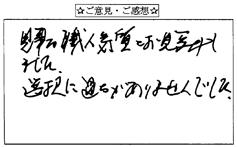 ☆ご意見・ご感想☆
職人気質とお見受けし
ました。
選択に過ちがありませんでした。